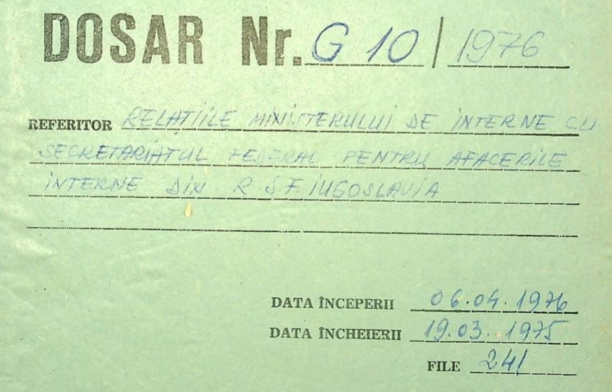 DOSAR Nr. G 10 / 1976
REFERITOR RELAȚIILE MINISTERULUI DE INTERNE CU
SECRETARIATUL FEDERAL PENTRU AFACERILE
INTERNE DIN R.S.F IUGOSLAVIA
DATA ÎNCEPERII 06.04.1976
DATA ÎNCHEIERII 19.03.1975
FILE 241